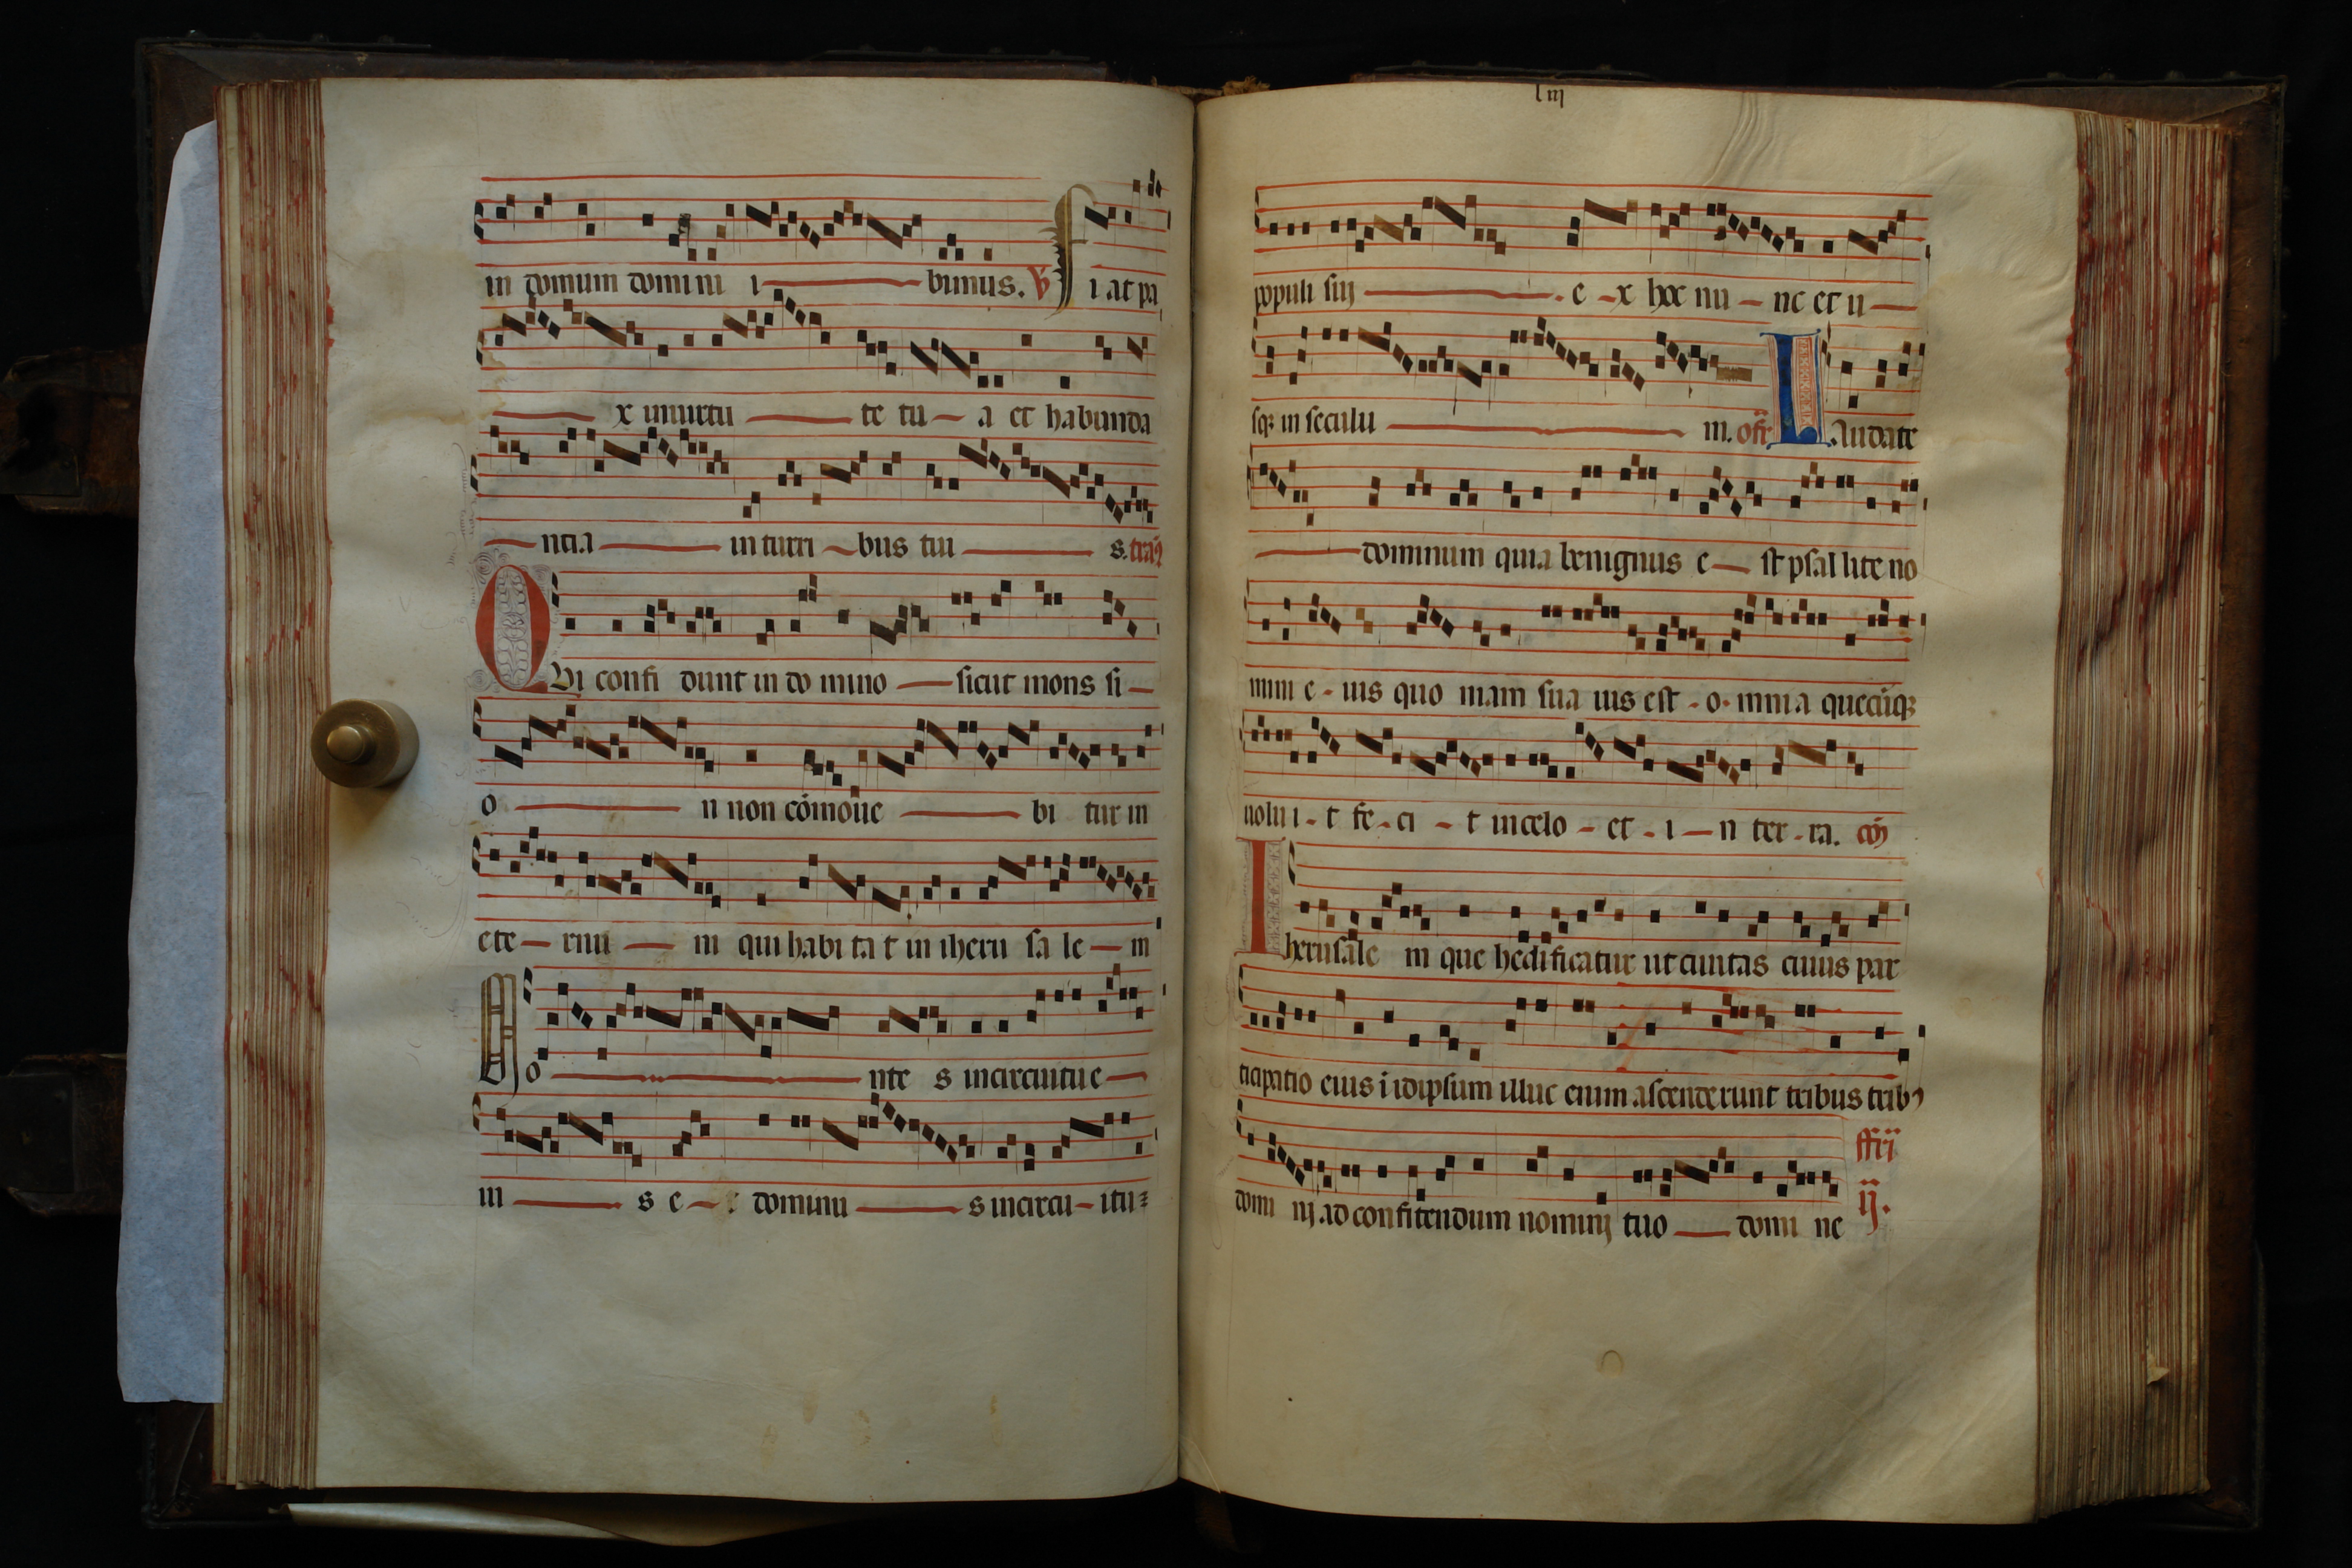 in domum domini i bimus. ℣ Fi at pa
x in uirtu te tu a et habunda
ntia in turri bus tui s. tra
QVi confi dunt in do mino sicut mons si
o n non cōmoue bi tur in
ete rnu m qui habi ta t in iheru sa le m
Mo nte s in circuitu e
iu s e t dominu s in circu itu
liij
populi sui e x hoc nu nc et u
sqꝫ in seculu m. ofr̄ Laudate
dominum quia benignus e st psal lite no
mini e ius quo niam sua uis est o mnia quecūqꝫ
uolu i t fe ci t in celo et i n ter ra. cō
Iherusale m que hedificatur ut ciuitas cuius par
ticipatio eius i idipsum illuc enim ascenderunt tribus tribꝰ
domi nij ad confitendum nominj tuo domi ne
ij.